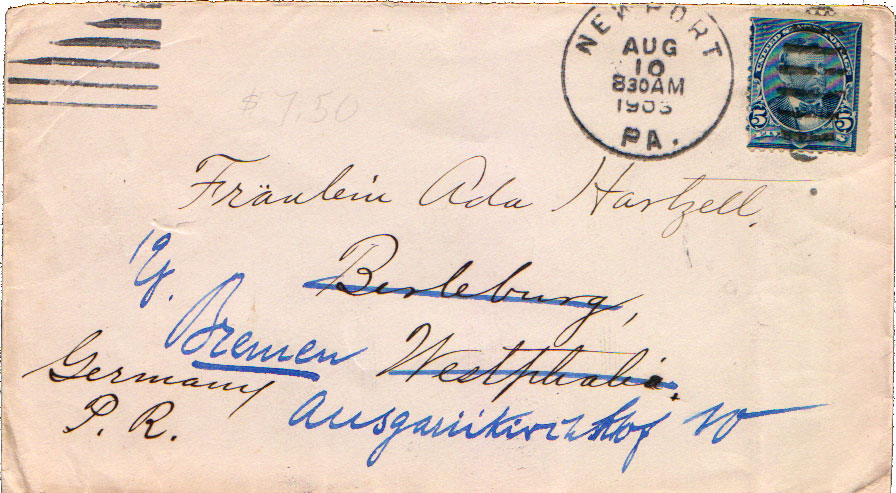 NEWPORT
AUG
10
830AM
1903
PA.
UNITED STATES POSTAGE
5 5
$7.50
Fräulein Ada Hartzell.
Berleburg,
Bremen Westphalia.
Germany
P. R. Ansgariikirchhof 10